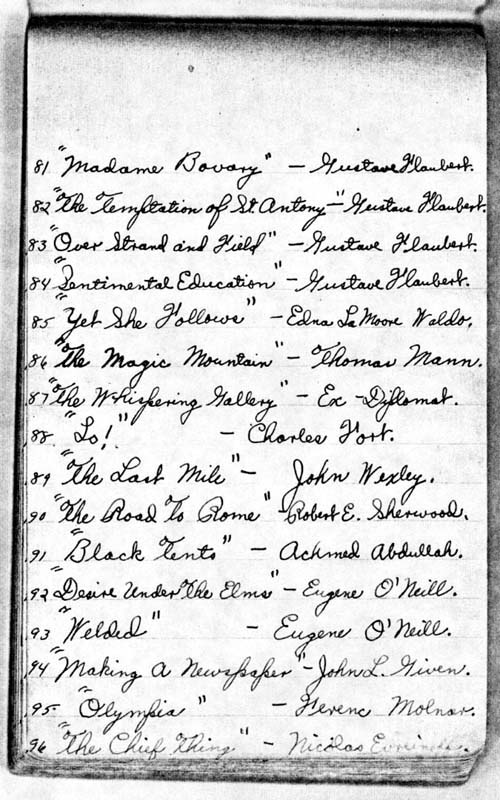 81 "Madame Bovary" - Gustave Flaubert.
82 "The Temptation of St Antony" - Gustave Flaubert.
83 "Over Strand and Field" - Gustave Flaubert.
84 "Sentimental Education" - Gustave Flaubert.
85 "Yet She Follows" - Edna La Moore Waldo.
86 "The Magic Mountain" - Thomas Mann.
87 "The Whispering Gallery" - Ex-Diplomat.
88. "Lo!" - Charles Fort.
89 "The Last Mile" - John Wexley.
90 "The Road To Rome" - Robert E. Sherwood.
91 "Black Tents" - Achmed Abdullah.
92 "Desire Under The Elms" - Eugene O'Neill.
93 "Welded" - Eugene O'Neill.
94 "Making A Newspaper" - John L. Given.
95 "Olympia" - Ferenc Molnar.
96 "The Chief Thing" - Nicolas Evreinoff.